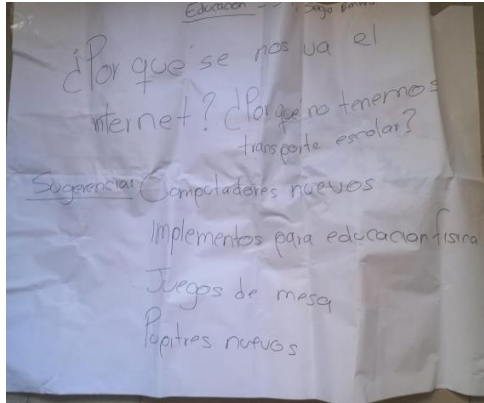 Educación
¿Por qué se nos va el
internet? ¿Por qué no tenemos
transporte escolar?
Sugerencias Computadores nuevos
Implementos para educacion fisica
Juegos de mesa
Pupitres nuevos